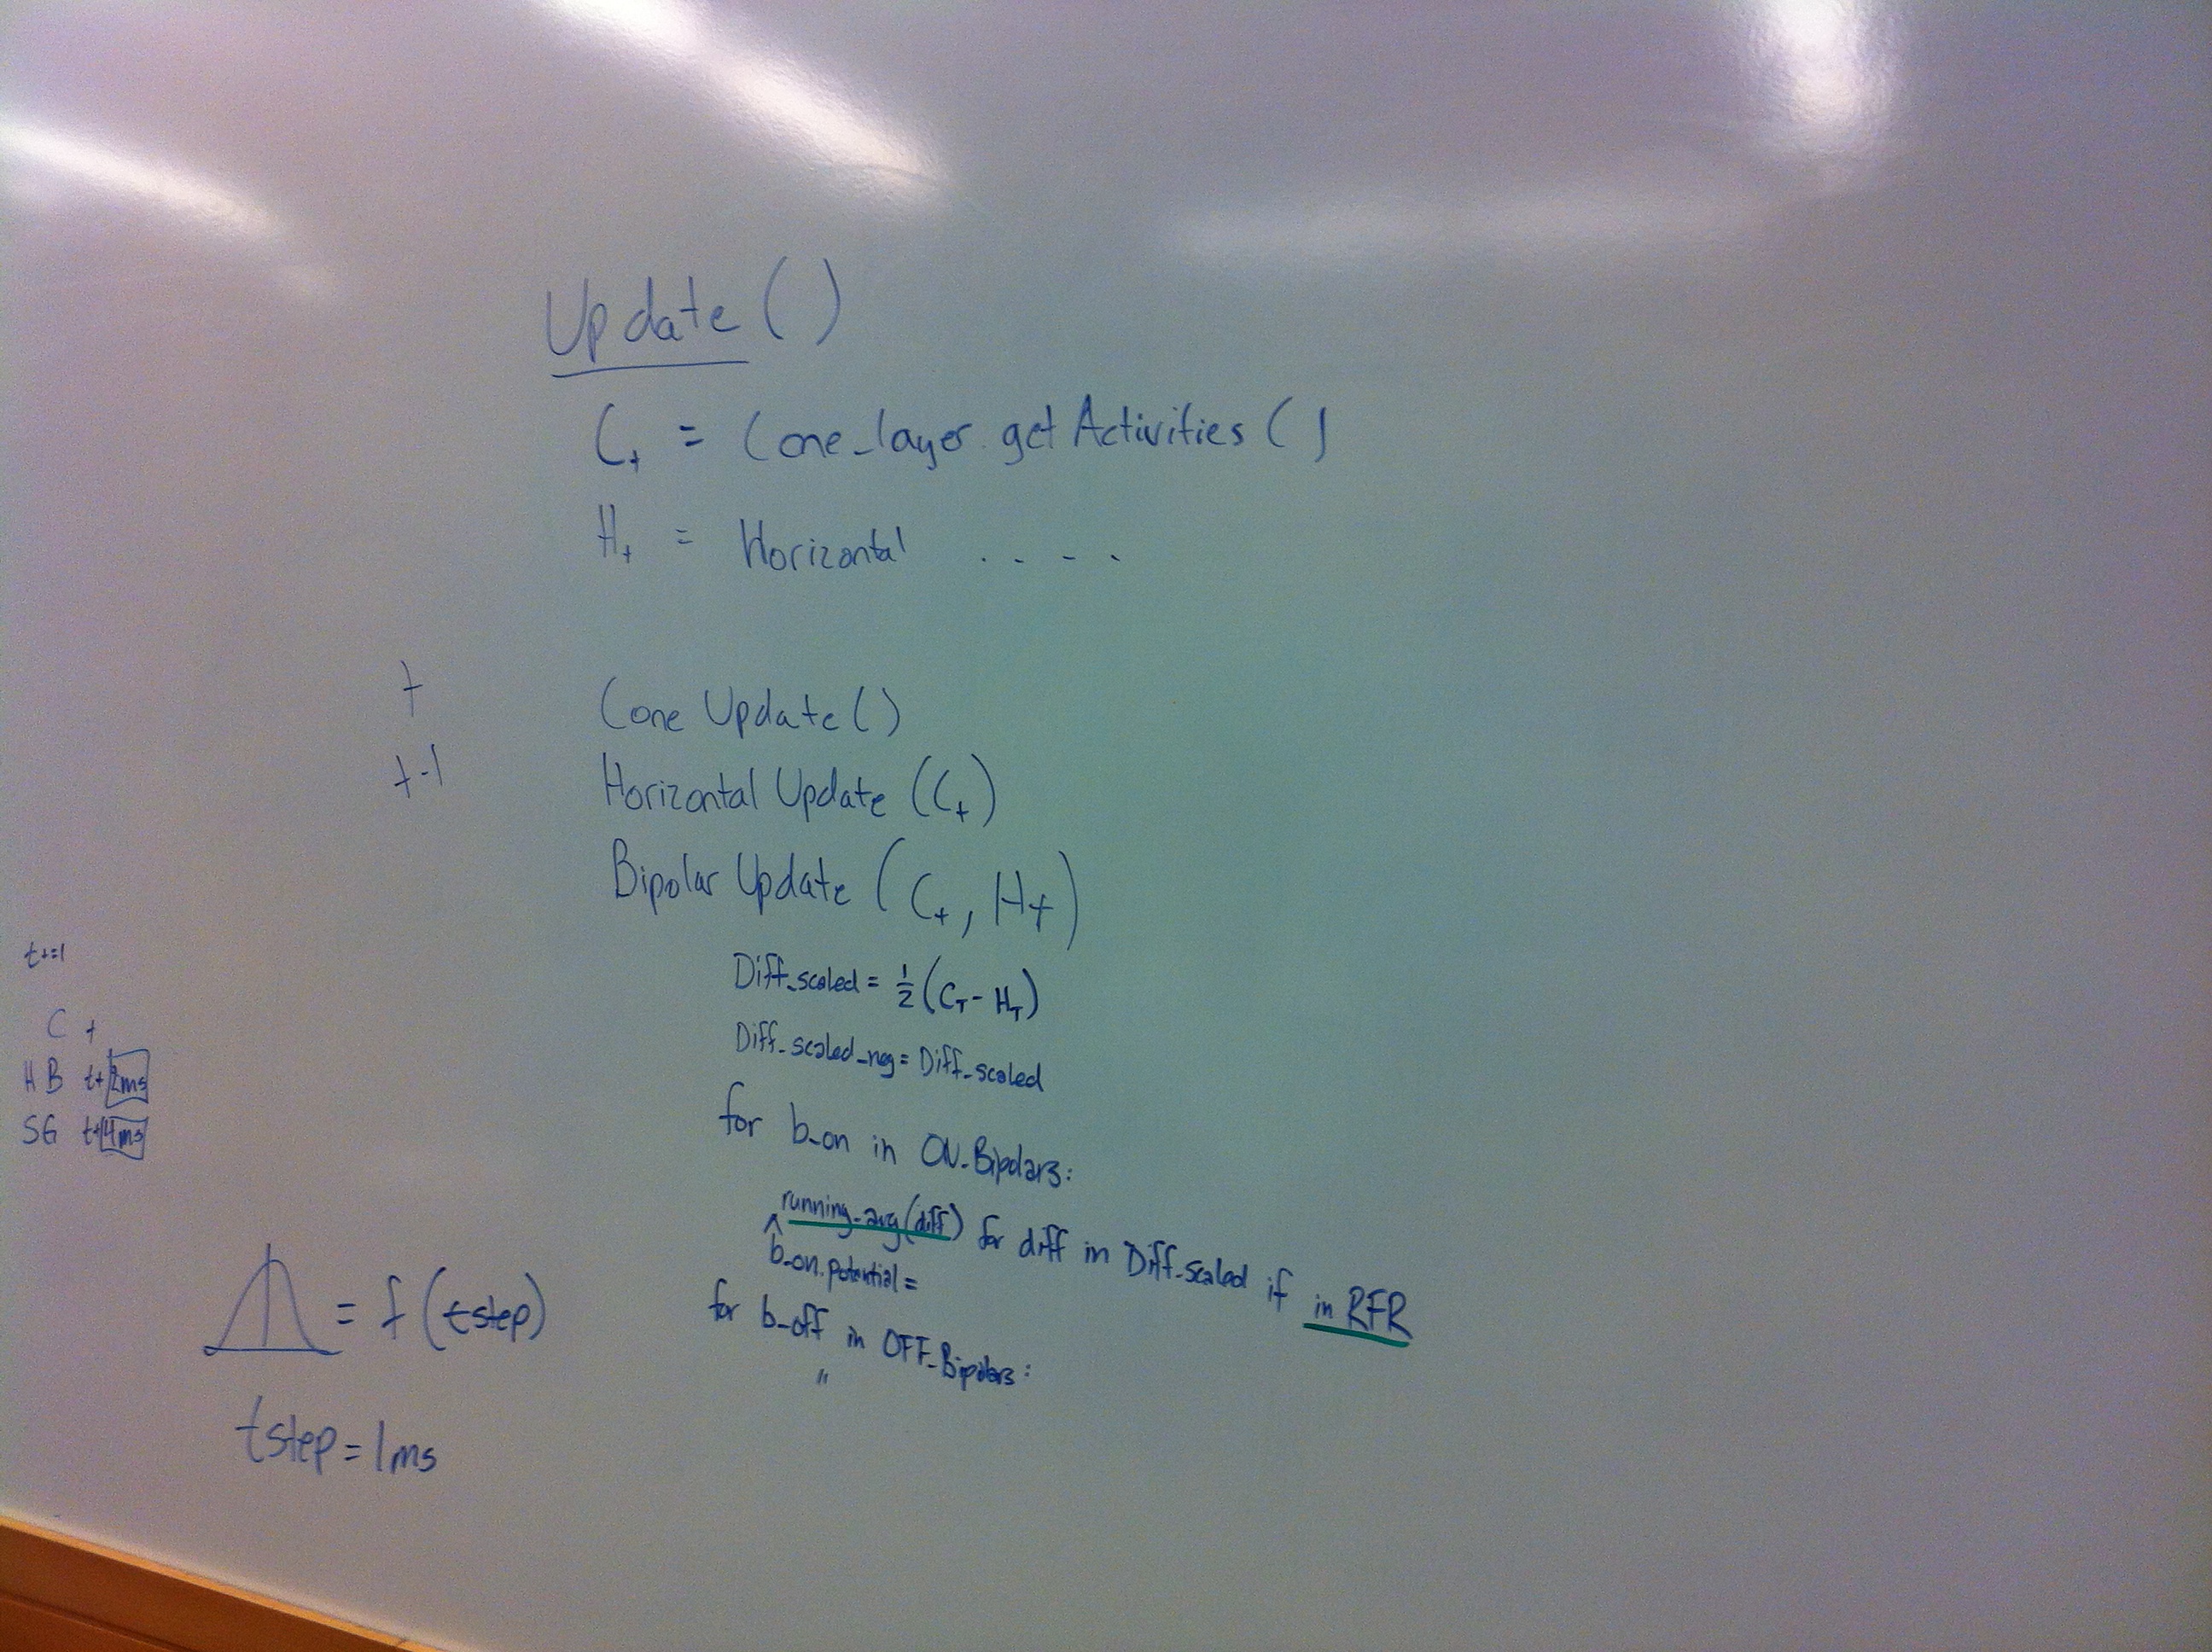 Update ()
Ct = Cone_layer.getActivities ()
Ht = Horizontal . . - .
t Cone Update ()
t-1 Horizontal Update (Ct)
Bipolar Update (Ct, Ht)
Diff_scaled = 1/2 (CT - HT)
Diff_scaled_neg = Diff_scaled
for b_on in ON_Bipolars:
running_avg(diff) for diff in Diff_scaled if in RFR
^
b_on.potential =
for b_off in OFF_Bipolars:
"
t+=1
C t
H B t+2ms
SG t+4ms
= f (tstep)
tstep = 1ms